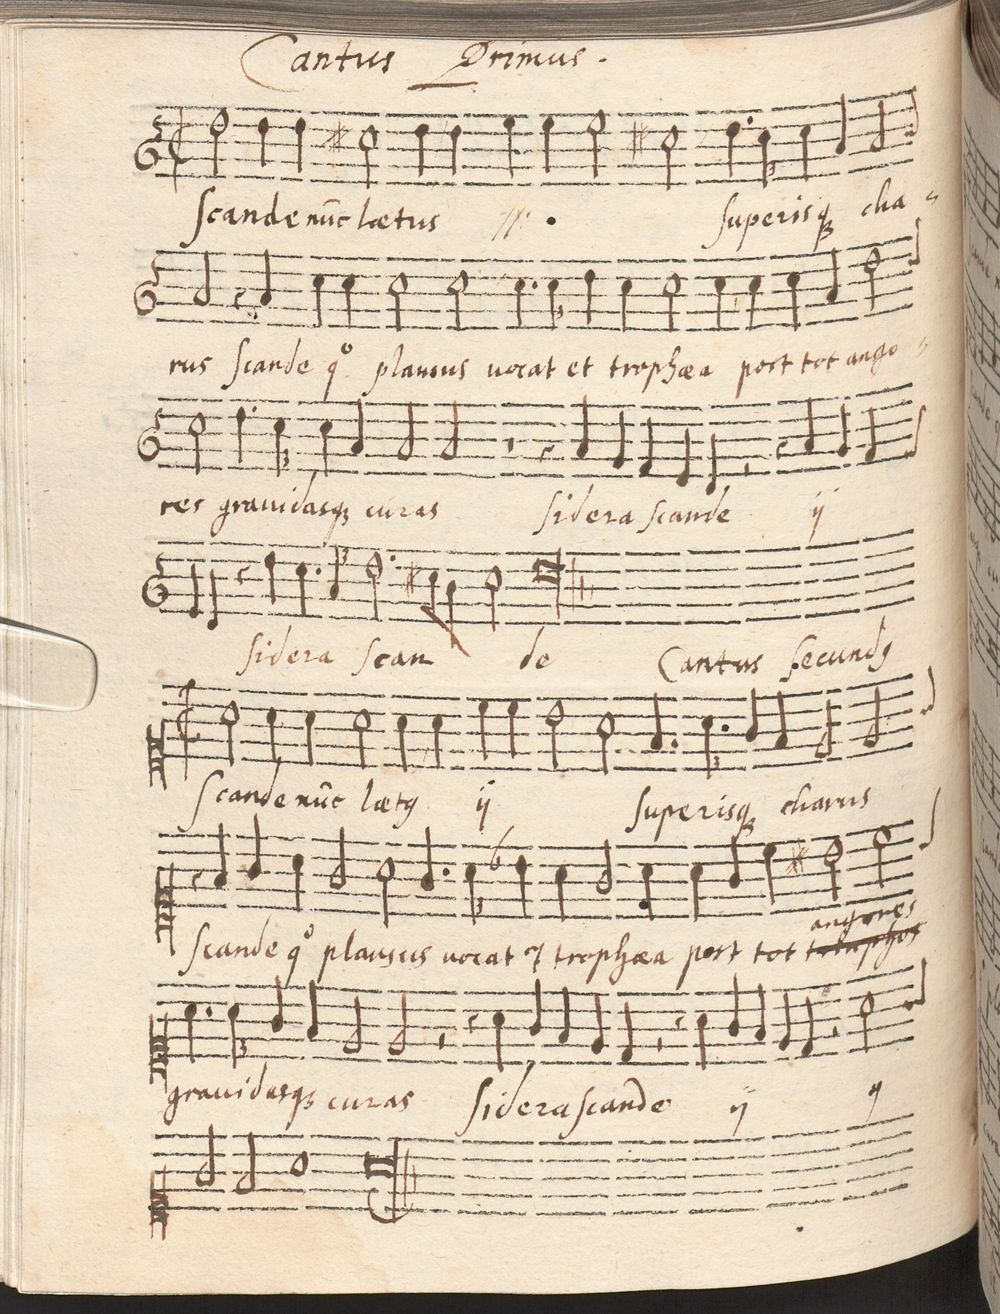 Cantus Primus.
Scande nūc lætus //. superisqȝ cha
rus scande qº plausus vocat et trophæa post tot ango
res grauidasqȝ curas sidera scande ij
sidera scan de Cantus secundꝰ
Scande nūc lætꝰ ij superisqȝ charus
angores
scande qº plausus vocat & trophæa post tot
grauidasqȝ curas sidera scande ij ij